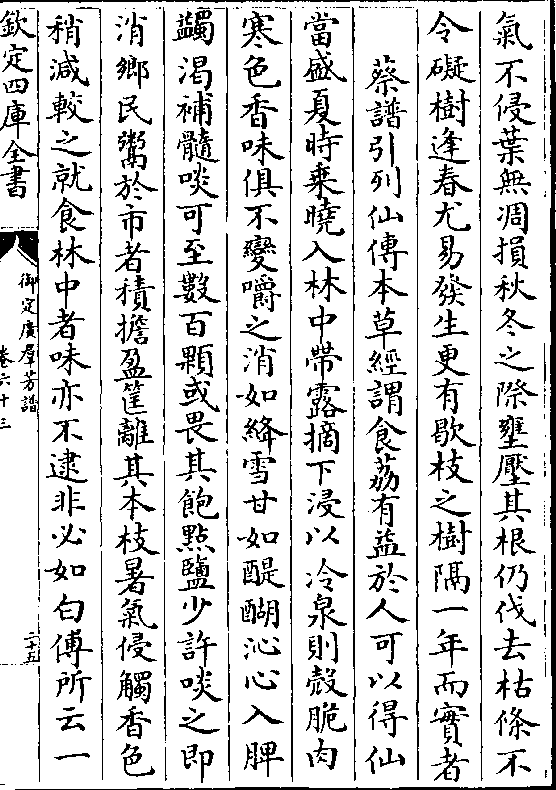 氣不侵葉無凋損秋冬之際壅壓其根仍伐去枯條不
令礙樹逢春尤易發生更有歇枝之樹隔一年而實者
蔡譜引列仙傳本草經謂食荔有益於人可以得仙
當盛夏時乗曉入林中帶露摘下浸以冷泉則殻脆肉
寒色香味俱不變嚼之消如絳雪甘如醍醐沁心入脾
蠲渴補髓啖可至數百顆或畏其飽㸃鹽少許啖之即
消鄉民鬻於市者積擔盈筐離其本枝暑氣侵觸香色
稍減較之就食林中者味亦不逮非必如白傅所云一
欽定四庫全書
御定廣羣芳譜
卷六十三
二十五